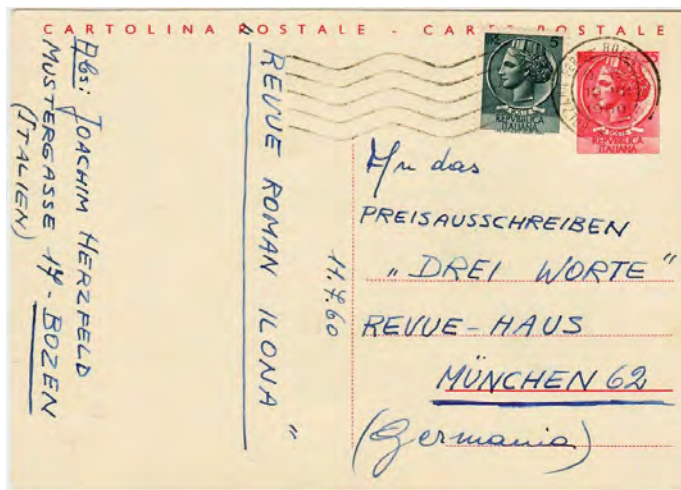 CARTOLINA POSTALE - CARTE POSTALE
5
POSTE
REPVBBLICA
ITALIANA
POSTE
REPVBBLICA
ITALIANA
An das
PREISAUSSCHREIBEN
„DREI WORTE"
REVUE-HAUS
MÜNCHEN 62
(Germania)
11.7.60
"REVUE ROMAN ILONA"
Abs: JOACHIM HERZFELD
MUSTERGASSE 17 - BOZEN
(ITALIEN)